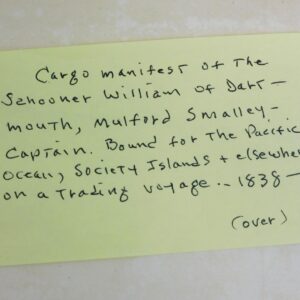 Cargo manifest of the
Schooner William of Dart-
mouth, Mulford Smalley-
Captain. Bound for the Pacific
Ocean, Society Islands + elsewher
on a Trading voyage.. 1838-
(over)